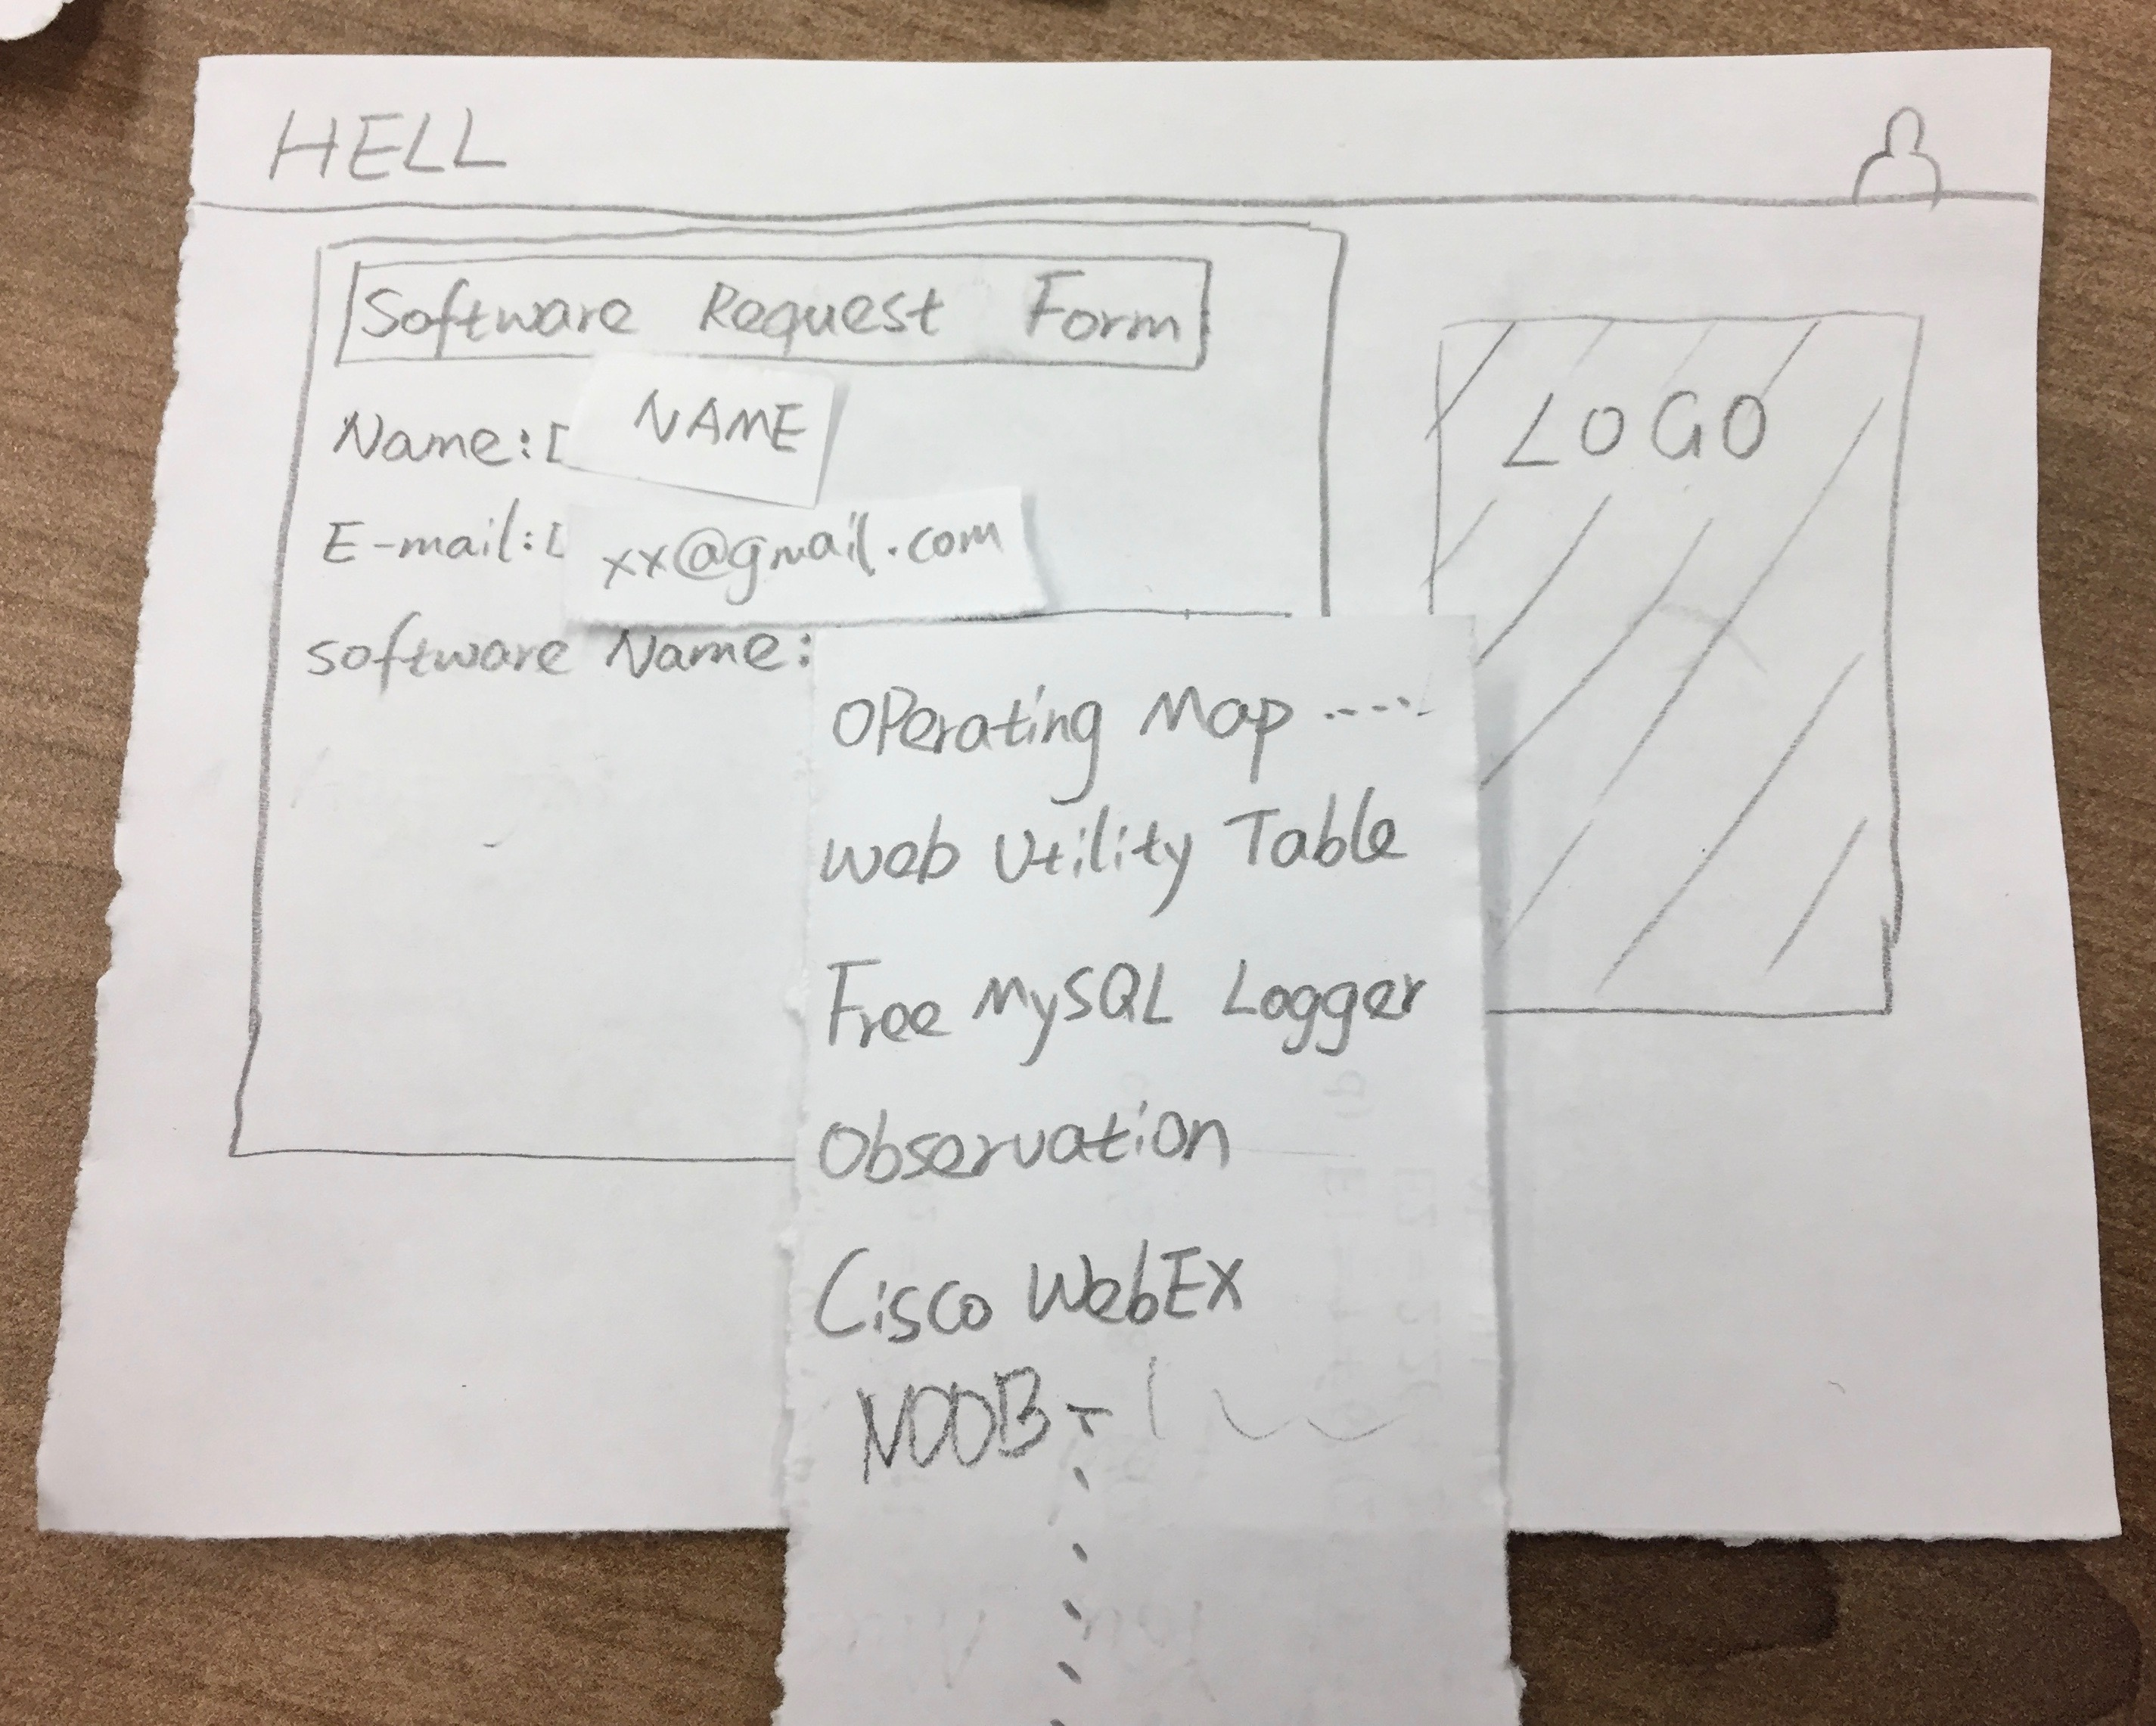 HELL
Software Request Form
Name:[ NAME
E-mail:[ xx@gmail.com
software Name:
LOGO
Operating Map .....
Web Utility Table
Free MySQL Logger
Observation
Cisco WebEx
NOOB